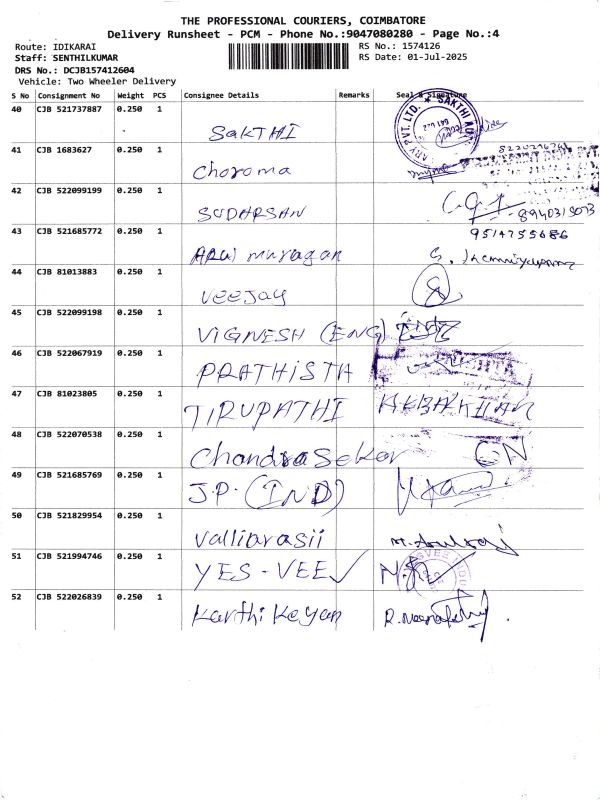 THE PROFESSIONAL COURIERS, COIMBATORE
Delivery Runsheet - PCM - Phone No.:9047080280 - Page No.:4
Route: IDIKARAI
RS No.: 1574126
Staff: SENTHILKUMAR
RS Date: 01-Jul-2025
DRS No.: DCJB157412604
Vehicle: Two Wheeler Delivery
S No Consignment No Weight PCS Consignee Details Remarks Seal & Signature
40 CJB 521737887 0.250 1
SakTHI
41 CJB 1683627 0.250 1
Choroma
42 CJB 522099199 0.250 1
SUDARSAN 8940315073
43 CJB 521685772 0.250 1 9514755686
Arul murugan
44 CJB 81013883 0.250 1
veejay
45 CJB 522099198 0.250 1
VIGNESH (ENG)
46 CJB 522067919 0.250 1
PRATHISTA
47 CJB 81023805 0.250 1
TIRUPATHI
48 CJB 522070538 0.250 1
Chandrasekar GN
49 CJB 521685769 0.250 1
J.P. (IND)
50 CJB 521829954 0.250 1
Valliarasii
51 CJB 521994746 0.250 1
YES-VEE
52 CJB 522026839 0.250 1
Karthikeyan